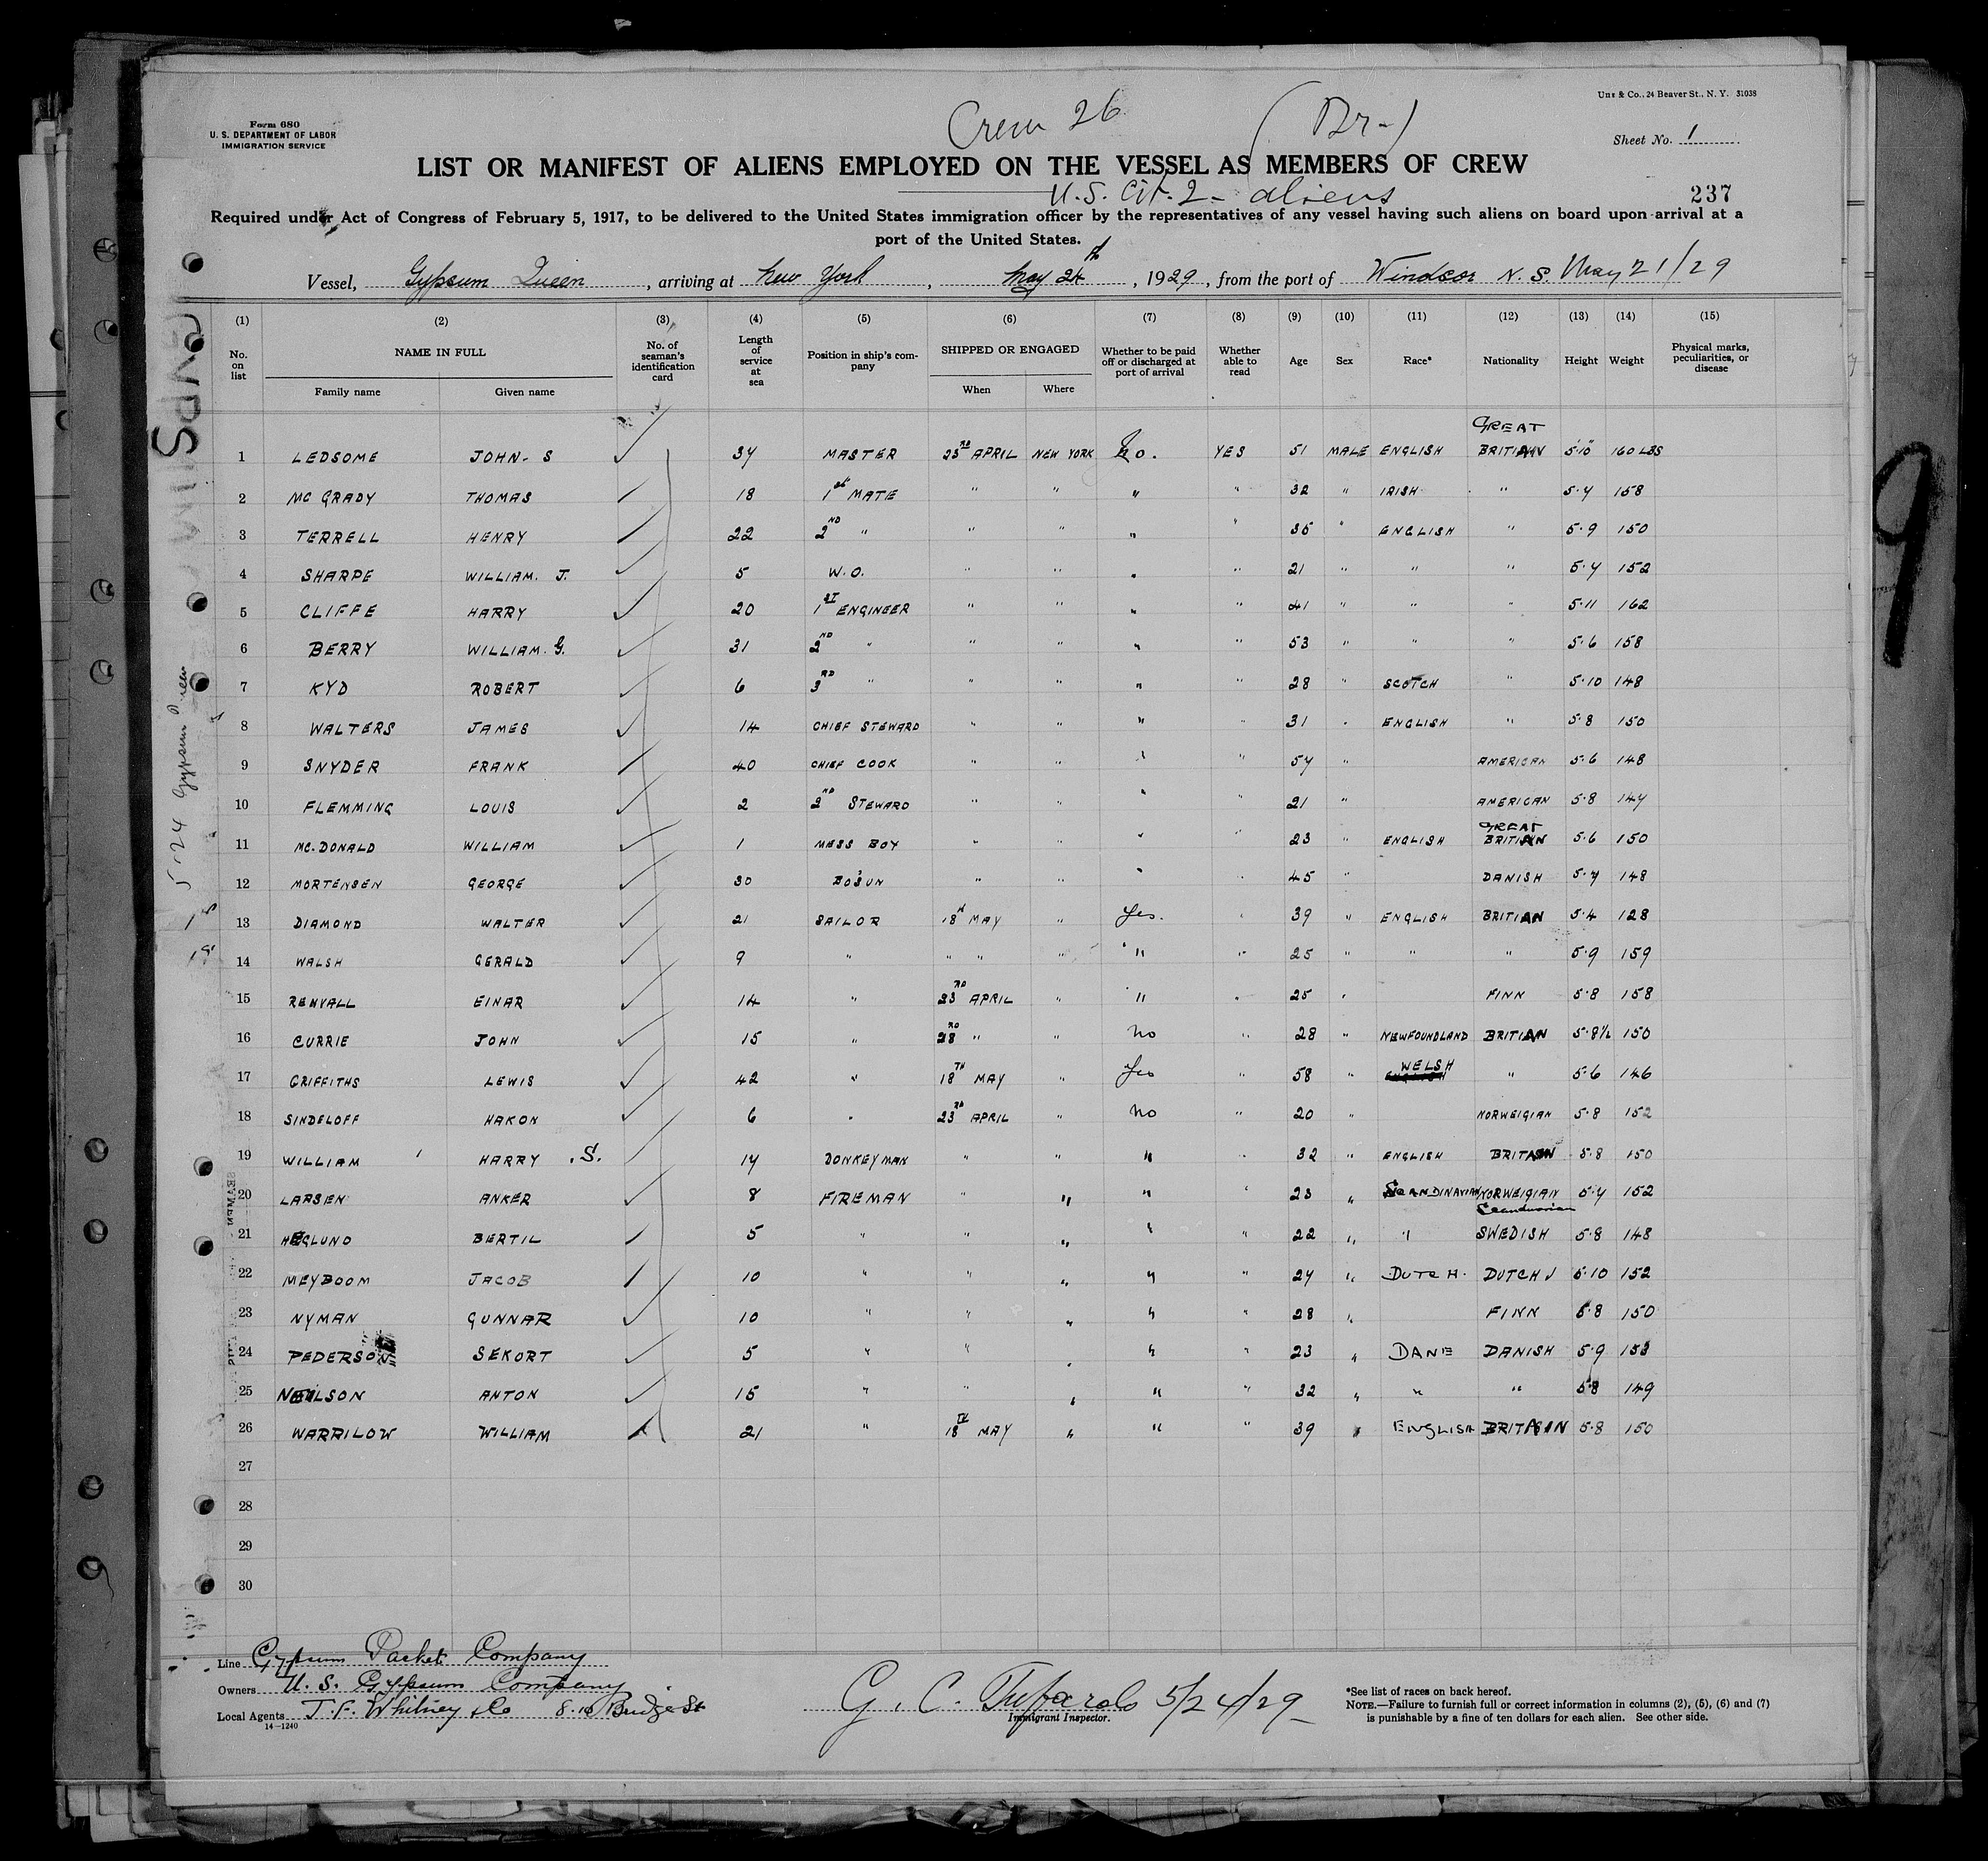 Crew 26 (Br-)
Form 680
U. S. DEPARTMENT OF LABOR
IMMIGRATION SERVICE
Unz & Co., 24 Beaver St., N. Y. 31038
Sheet No. 1
LIST OR MANIFEST OF ALIENS EMPLOYED ON THE VESSEL AS MEMBERS OF CREW
U.S. Cit. 2 - aliens
237
Required under Act of Congress of February 5, 1917, to be delivered to the United States immigration officer by the representatives of any vessel having such aliens on board upon arrival at a
port of the United States.
Vessel, Gypsum Queen, arriving at New York, May 24th, 1929, from the port of Windsor N. S. May 21/29
(1) (2) (3) (4) (5) (6) (7) (8) (9) (10) (11) (12) (13) (14) (15)
No. on list NAME IN FULL Family name Given name No. of seaman's identification card Length of service at sea Position in ship's company SHIPPED OR ENGAGED When Where Whether to be paid off or discharged at port of arrival Whether able to read Age Sex Race* Nationality Height Weight Physical marks, peculiarities, or disease
1 LEDSOME JOHN. S 34 MASTER 23RD APRIL NEW YORK No. YES 51 MALE ENGLISH GREAT BRITIAN 5'10" 160 LBS
2 MC GRADY THOMAS 18 1st MATE " " " " 32 " IRISH " 5.4 158
3 TERRELL HENRY 22 2ND " " " " " 35 " ENGLISH 5.9 150
4 SHARPE WILLIAM. J. 5 W.O. " " " " 21 " " " 5.4 152
5 CLIFFE HARRY 20 1ST ENGINEER " " " " 41 " " " 5.11 162
6 BERRY WILLIAM. G. 31 2ND " " " " " 53 " " " 5.6 158
7 KYD ROBERT 6 3RD " " " " " 28 " SCOTCH " 5.10 148
8 WALTERS JAMES 14 CHIEF STEWARD " " " " 31 " ENGLISH " 5.8 150
9 SNYDER FRANK 40 CHIEF COOK " " " " 54 " AMERICAN 5.6 148
10 FLEMMING LOUIS 2 2ND STEWARD " " " " 21 " AMERICAN 5.8 144
11 MC. DONALD WILLIAM 1 MESS BOY " " " " 23 " ENGLISH GREAT BRITIAN 5.6 150
12 MORTENSEN GEORGE 30 BO'SUN " " " " 45 " DANISH 5.4 148
13 DIAMOND WALTER 21 SAILOR 18th MAY " Yes. " 39 " ENGLISH BRITIAN 5.4 128
14 WALSH GERALD 9 " " " " " " 25 " " " 5.9 159
15 RENVALL EINAR 14 " 23RD APRIL " " " 25 " FINN 5.8 158
16 CURRIE JOHN 15 " 23RD " " No " 28 " NEWFOUNDLAND BRITIAN 5.8½ 150
17 GRIFFITHS LEWIS 42 " 18TH MAY " Yes " 58 " WELSH " 5.6 146
18 SINDELOFF HAKON 6 " 23RD APRIL " No " 20 " NORWEIGIAN 5.8 152
19 WILLIAM HARRY . S. 14 DONKEYMAN " " " " 32 " ENGLISH BRITAIN 5.8 150
20 LARSEN ANKER 8 FIREMAN " " " " 23 " SCANDINAVIAN NORWEIGIAN 5.4 152
Scandinavian
21 HEGLUND BERTIL 5 " " " " " 22 " " SWEDISH 5.8 148
22 MEYBOOM JACOB 10 " " " " " 24 " DUTCH. DUTCH 5.10 152
23 NYMAN GUNNAR 10 " " " " " 28 " FINN 5.8 150
24 PEDERSON SEKORT 5 " " " " " 23 " DANE DANISH 5.9 153
25 NEILSON ANTON 15 " " " " " 32 " " " 5.8 149
26 WARRILOW WILLIAM 21 " 18TH MAY " " " 39 " ENGLISH BRITAIN 5.8 150
27
28
29
30
Line Gypsum Packet Company
Owners U. S. Gypsum Company
Local Agents J. F. Whitney & Co 8-10 Bridge St
14—1240
G. C. 5/24/29
Immigrant Inspector.
*See list of races on back hereof.
NOTE.—Failure to furnish full or correct information in columns (2), (5), (6) and (7)
is punishable by a fine of ten dollars for each alien. See other side.
5-24 Gypsum Queen
9